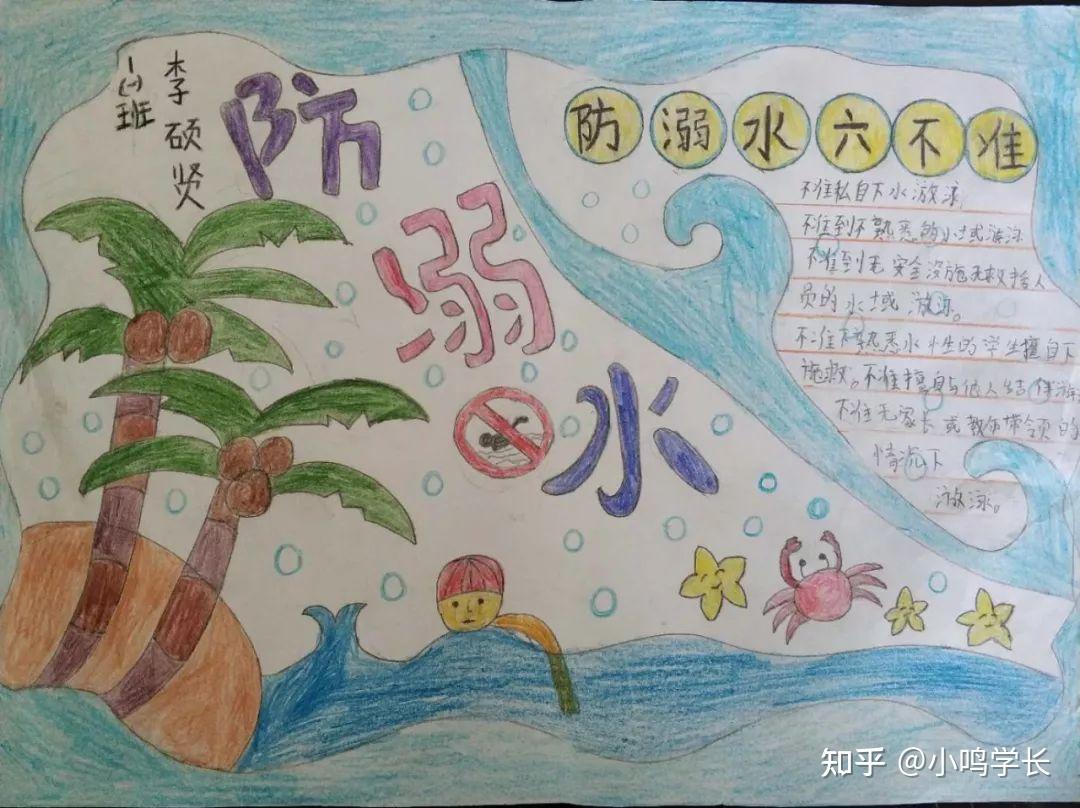 一(一)班
李硕贤
防
溺
水
防溺水六不准
不准私自下水游泳
不准到不熟悉的水域游泳
不准到无安全设施无救援人
员的水域游泳。
不准不熟悉水性的学生擅自下
施救。不准擅自与他人结伴游
不准无家长或教师带领的
情况下
游泳。
知乎 @小鸣学长